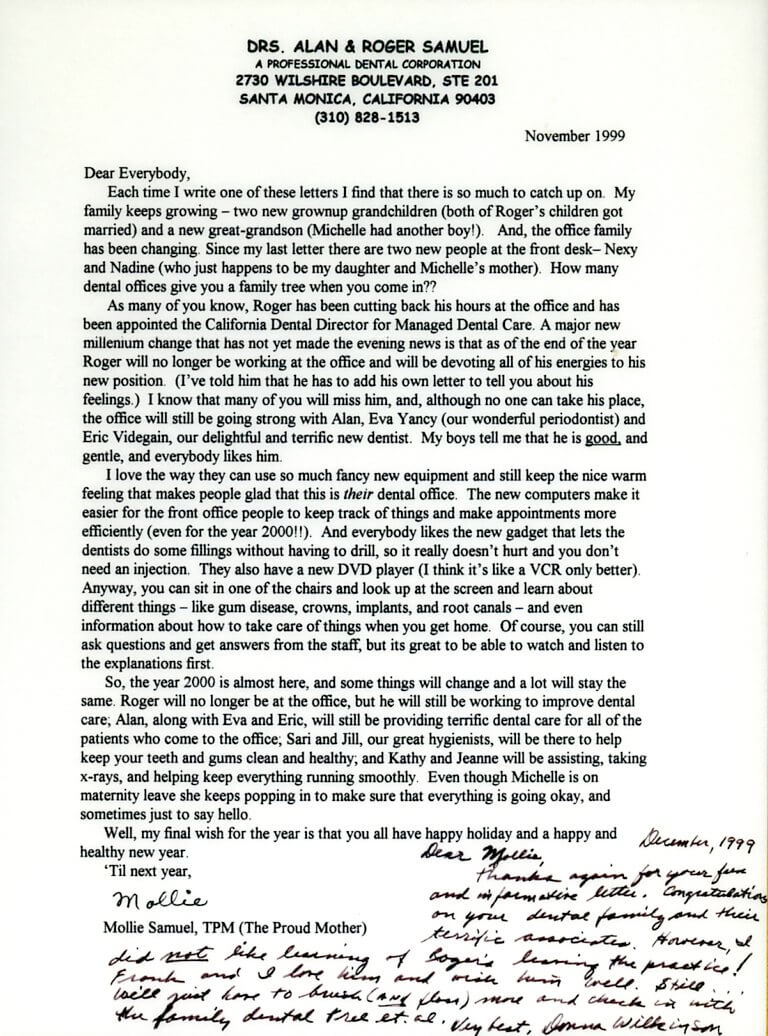 DRS. ALAN & ROGER SAMUEL
A PROFESSIONAL DENTAL CORPORATION
2730 WILSHIRE BOULEVARD, STE 201
SANTA MONICA, CALIFORNIA 90403
(310) 828-1513
November 1999
Dear Everybody,
Each time I write one of these letters I find that there is so much to catch up on. My
family keeps growing – two new grownup grandchildren (both of Roger's children got
married) and a new great-grandson (Michelle had another boy!). And, the office family
has been changing. Since my last letter there are two new people at the front desk– Nexy
and Nadine (who just happens to be my daughter and Michelle's mother). How many
dental offices give you a family tree when you come in??
As many of you know, Roger has been cutting back his hours at the office and has
been appointed the California Dental Director for Managed Dental Care. A major new
millenium change that has not yet made the evening news is that as of the end of the year
Roger will no longer be working at the office and will be devoting all of his energies to his
new position. (I've told him that he has to add his own letter to tell you about his
feelings.) I know that many of you will miss him, and, although no one can take his place,
the office will still be going strong with Alan, Eva Yancy (our wonderful periodontist) and
Eric Videgain, our delightful and terrific new dentist. My boys tell me that he is good, and
gentle, and everybody likes him.
I love the way they can use so much fancy new equipment and still keep the nice warm
feeling that makes people glad that this is their dental office. The new computers make it
easier for the front office people to keep track of things and make appointments more
efficiently (even for the year 2000!!). And everybody likes the new gadget that lets the
dentists do some fillings without having to drill, so it really doesn't hurt and you don't
need an injection. They also have a new DVD player (I think it's like a VCR only better).
Anyway, you can sit in one of the chairs and look up at the screen and learn about
different things – like gum disease, crowns, implants, and root canals – and even
information about how to take care of things when you get home. Of course, you can still
ask questions and get answers from the staff, but its great to be able to watch and listen to
the explanations first.
So, the year 2000 is almost here, and some things will change and a lot will stay the
same. Roger will no longer be at the office, but he will still be working to improve dental
care; Alan, along with Eva and Eric, will still be providing terrific dental care for all of the
patients who come to the office; Sari and Jill, our great hygienists, will be there to help
keep your teeth and gums clean and healthy; and Kathy and Jeanne will be assisting, taking
x-rays, and helping keep everything running smoothly. Even though Michelle is on
maternity leave she keeps popping in to make sure that everything is going okay, and
sometimes just to say hello.
Well, my final wish for the year is that you all have happy holiday and a happy and
healthy new year.
'Til next year,
Mollie
Mollie Samuel, TPM (The Proud Mother)
December, 1999
Dear Mollie,
Thanks again for your fun
and informative letter. Congratulations
on your dental family and their
terrific associates. However, I
did not like learning of Roger's leaving the practice!
Frank and I love him and wish him well. Still...
We'll just have to brush (and floss) more and check in with
the family dental tree et. al. Very best, Donna Wilkinson